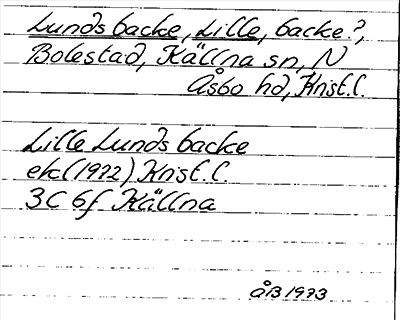 Lunds backe, Lille, backe?,
Bolestad, Källna sn, N
Åsbo hd, Krist.l.
Lille Lunds backe
ek(1972) Krist.l.
3C 6f Källna
ÅB 1973